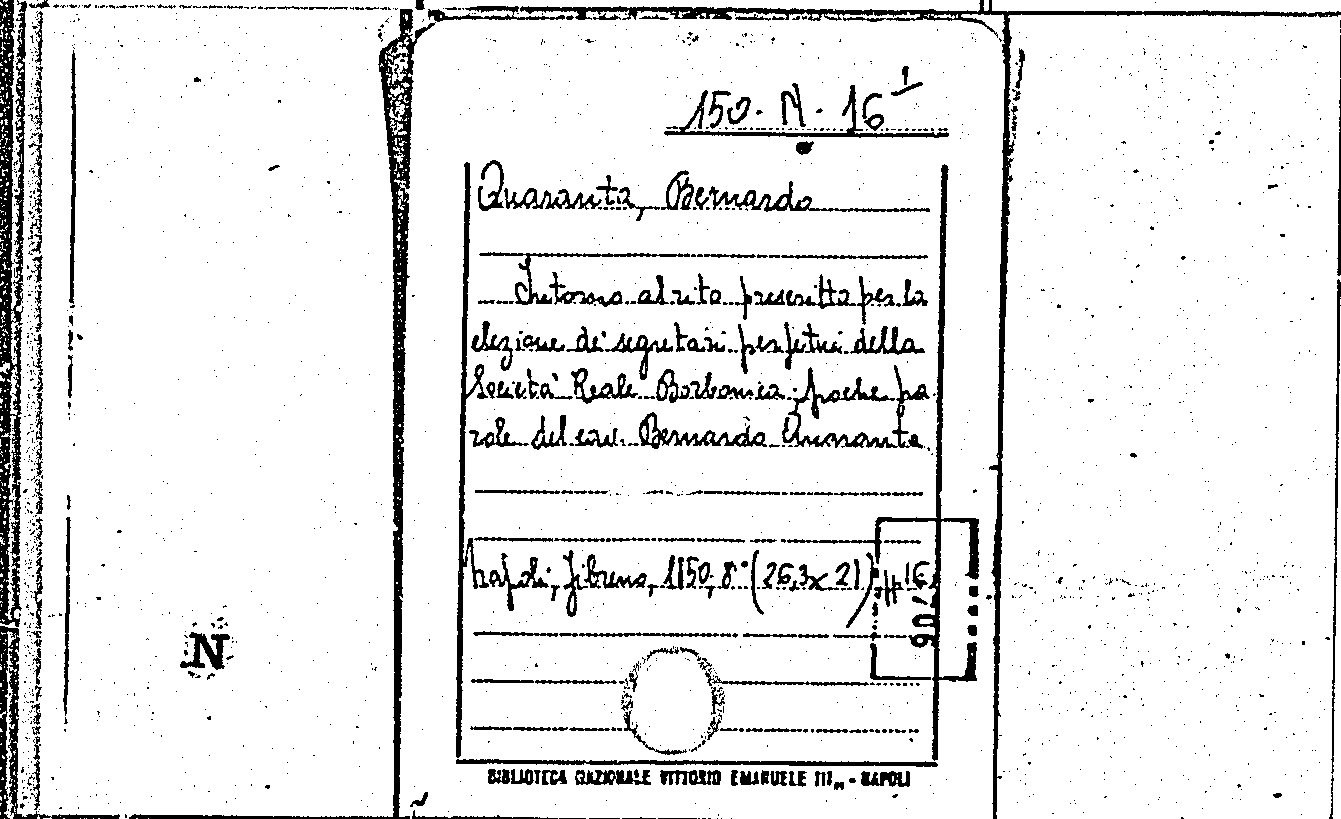 150. N. 16 1
Quaranta, Bernardo
Intorno al rito prescritto per la
elezione de' segretari perpetui della
Società Reale Borbonica; poche pa
role del cav. Bernardo Quaranta
Napoli, Fibreno, 1850, 8° (26,3x21)
N
BIBLIOTECA NAZIONALE VITTORIO EMANUELE III - NAPOLI